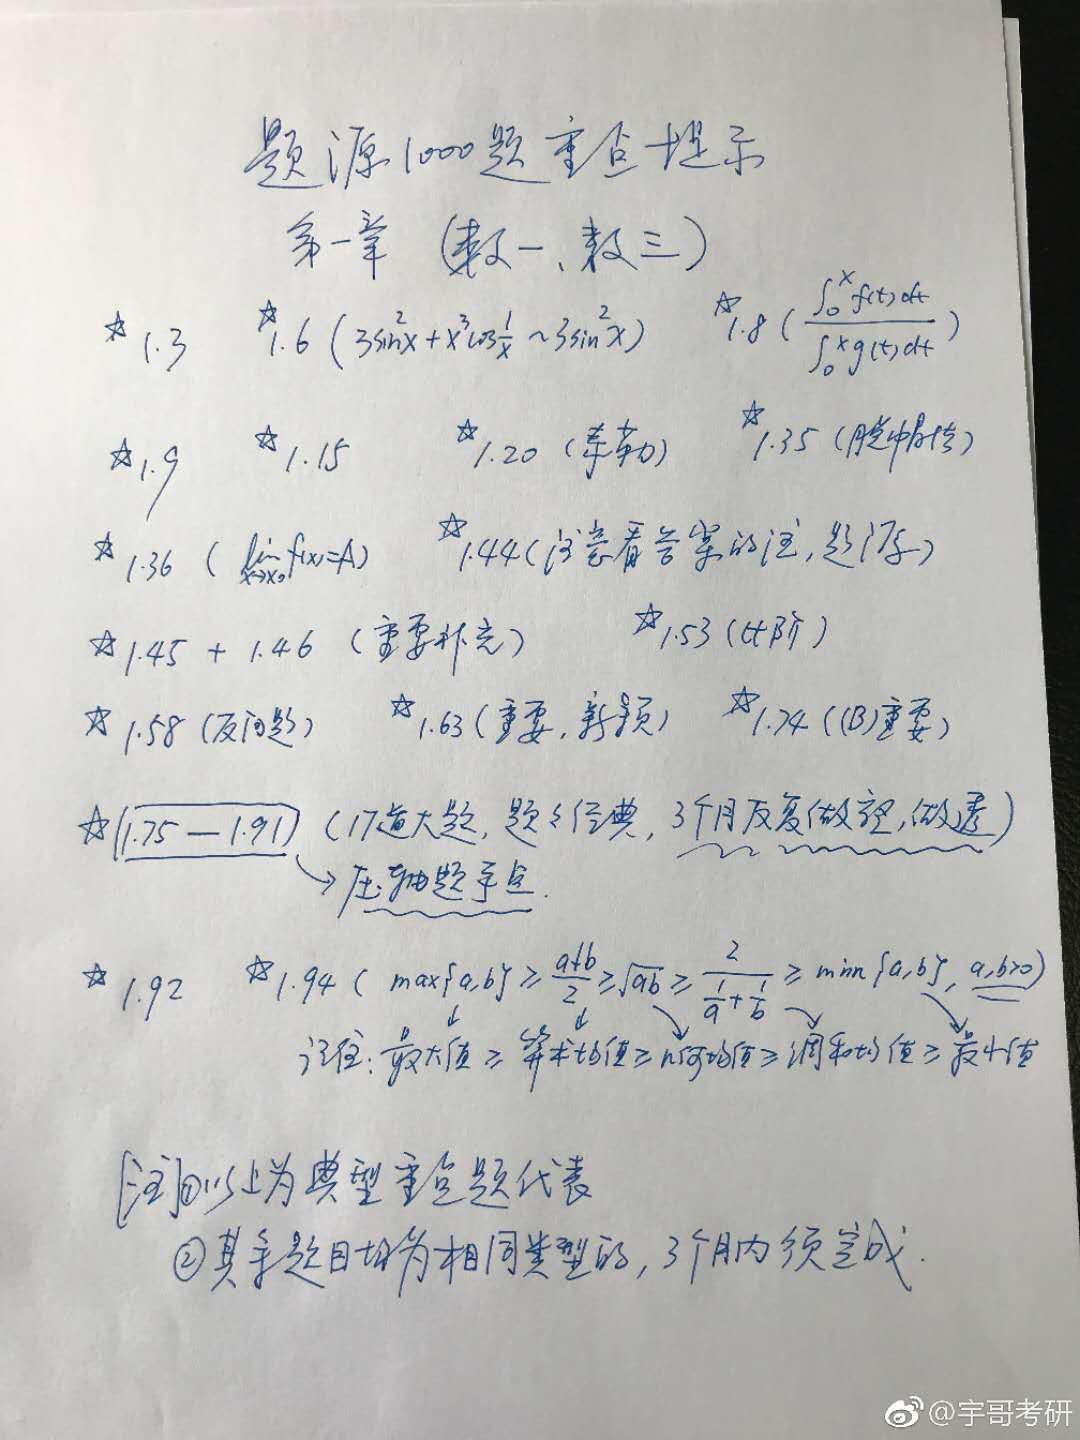 题源1000题重点提示
第一章 (数一、数三)
☆1.3 ☆1.6 (3sin²x+x³cos1/x~3sin²x) ☆1.8 (∫₀ˣf(t)dt/∫₀ˣg(t)dt)
☆1.9 ☆1.15 ☆1.20 (泰勒) ☆1.35
☆1.36 (lim x→x₀ f(x)=A) ☆1.44 (注意看答案的注,
☆1.45 + 1.46 (重要补充) ☆1.53 (比阶)
☆1.58 (反问题) ☆1.63 (重要,新颖) ☆1.74 ((B)重要)
☆(1.75—1.91) (17道大题,题々经典,3个月反复做,做透)
→压轴题重点.
☆1.92 ☆1.94 (max{a,b}≥(a+b)/2≥√ab≥2/(1/a+1/b)≥min{a,b}, a,b>0)
记住:最大值≥算术均值≥几何均值≥调和均值≥最小值
[注]①以上为典型重点题代表
②其余题目均为相同类型的,3个月内须完成.
@宇哥考研